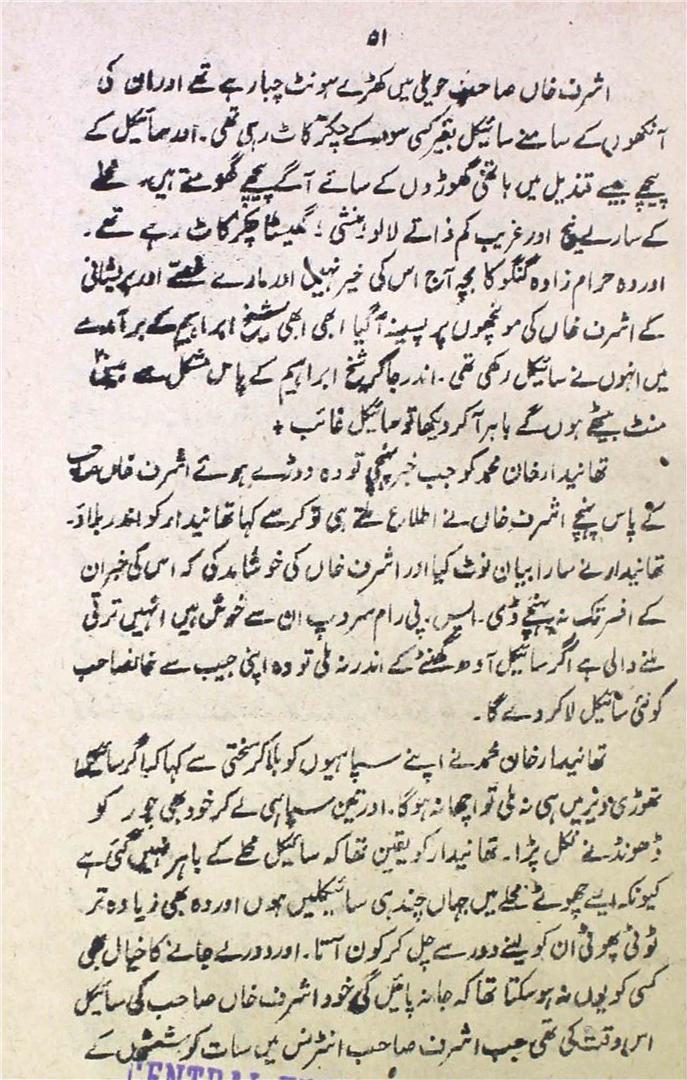 ۵۱
اشرف خاں صاحب حویلی میں کھڑے ہونٹ چبا رہے تھے اور ان کی
آنکھوں کے سامنے سائیکل بغیر کسی سوار کے چکر کاٹ رہی تھی۔ اور سائیکل کے
پیچھے جیسے قندیل میں ہاتھی گھوڑوں کے سائے آگے پیچھے گھومتے ہیں۔ محلے
کے سارے نیچ اور غریب کم ذاتے لالو، بنشی، گھیسٹا چکر کاٹ رہے تھے۔
اور وہ حرام زادہ گنگو کا بچہ آج اس کی خیر نہیں اور مارے غصے اور پریشانی
کے اشرف خاں کی مونچھوں پر پسینہ آ گیا ابھی ابھی شیخ ابراہیم کے برآمدے
میں انہوں نے سائیکل رکھی تھی۔ اندر جا کر شیخ ابراہیم کے پاس مشکل سے بیس
منٹ بیٹھے ہوں گے باہر آ کر دیکھا تو سائیکل غائب +
تھانیدار خان محمد کو جب خبر پہنچی تو وہ دوڑے ہوئے اشرف خاں صاحب
کے پاس پہنچے اشرف خاں نے اطلاع ملتے ہی نوکر سے کہا تھانیدار کو اندر بلاؤ۔
تھانیدار نے سارا بیان نوٹ کیا اور اشرف خاں کی خوشامد کی کہ اس کی خبر ان
کے افسر تک نہ پہنچے ڈی۔ ایس۔ پی رام سروپ ان سے خوش ہیں انہیں ترقی
ملنے والی ہے اگر سائیکل آدھ گھنٹے کے اندر نہ ملی تو وہ اپنی جیب سے خانصاحب
کو نئی سائیکل لا کر دے گا۔
تھانیدار خان محمد نے اپنے سپاہیوں کو بلا کر سختی سے کہا کہ اگر سائیکل
تھوڑی دیر میں ہی نہ ملی تو اچھا نہ ہوگا۔ اور تین سپاہی لے کر خود بھی چور کو
ڈھونڈنے نکل پڑا۔ تھانیدار کو یقین تھا کہ سائیکل محلے کے باہر نہیں گئی ہے
کیونکہ ایسے چھوٹے محلے میں جہاں چند ہی سائیکلیں ہوں اور وہ بھی زیادہ تر
ٹوٹی پھوٹی ان کو لینے دور سے چل کر کون آتا۔ اور دور لے جانے کا خیال بھی
کسی کو یوں نہ ہو سکتا تھا کہ جا نہ پائیں گی خود اشرف خاں صاحب کی سائیکل
اس وقت کی تھی جب اشرف صاحب انٹرنس میں سات کوششوں کے
CENTRAL